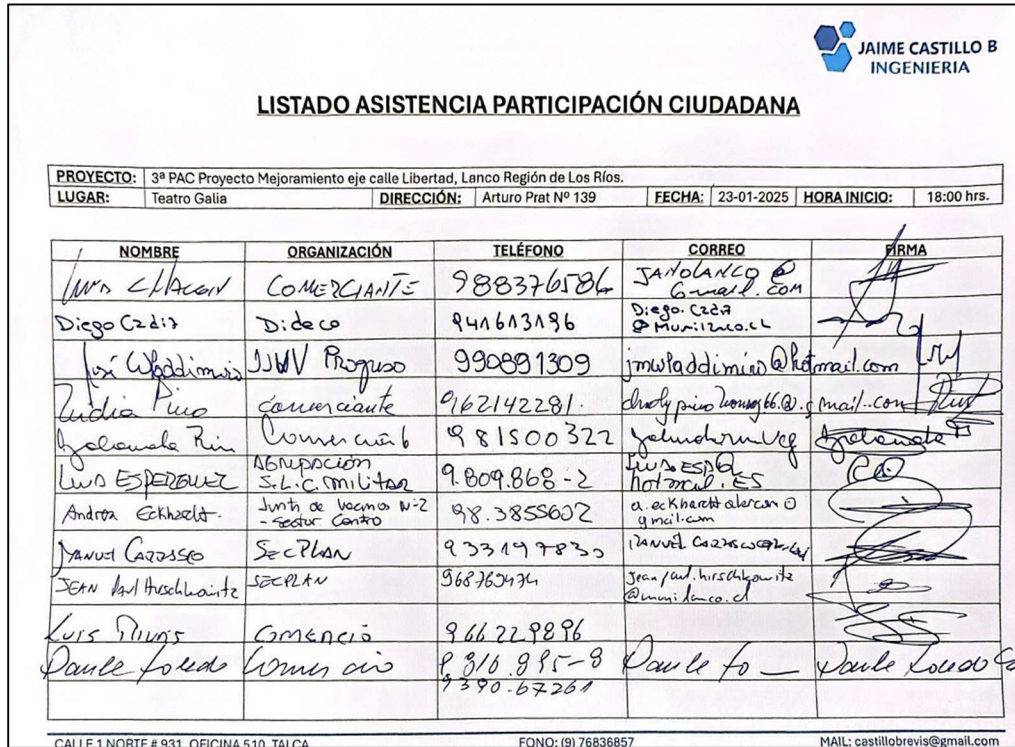 JAIME CASTILLO B
INGENIERIA
LISTADO ASISTENCIA PARTICIPACIÓN CIUDADANA
PROYECTO: 3ª PAC Proyecto Mejoramiento eje calle Libertad, Lanco Región de Los Ríos.
LUGAR: Teatro Galia DIRECCIÓN: Arturo Prat Nº 139 FECHA: 23-01-2025 HORA INICIO: 18:00 hrs.
NOMBRE ORGANIZACIÓN TELÉFONO CORREO FIRMA
COMERCIANTE 988376586 JANOLANCO @
Gmail.com
Diego Cadiz Dideco 941613196 Diego.Cadiz
@Munilanco.cl
José Wladdimiro JJVV Progreso 990891309 jmwladdimiro@hotmail.com
Pino Comerciante 962142281.
981500322
Luis AGRUPACIÓN
S.L.C. MILITAR 9.809.868-2
Andrea Eckhardt. Junta de Vecinos N-2
- Sector Centro 98.3855602 a.eckhardtalarcon@
gmail.com
SECPLAN 933197830
JEAN Paul Hirschkowitz SECPLAN 968769474 jean/paul.hirschkowitz
@munilanco.cl
Luis COMERCIO 966229896
Dante Toledo Comercio 9390.67261 Dante To Dante Toledo
CALLE 1 NORTE # 931, OFICINA 510, TALCA FONO: (9) 76836857 MAIL: castillobrevis@gmail.com